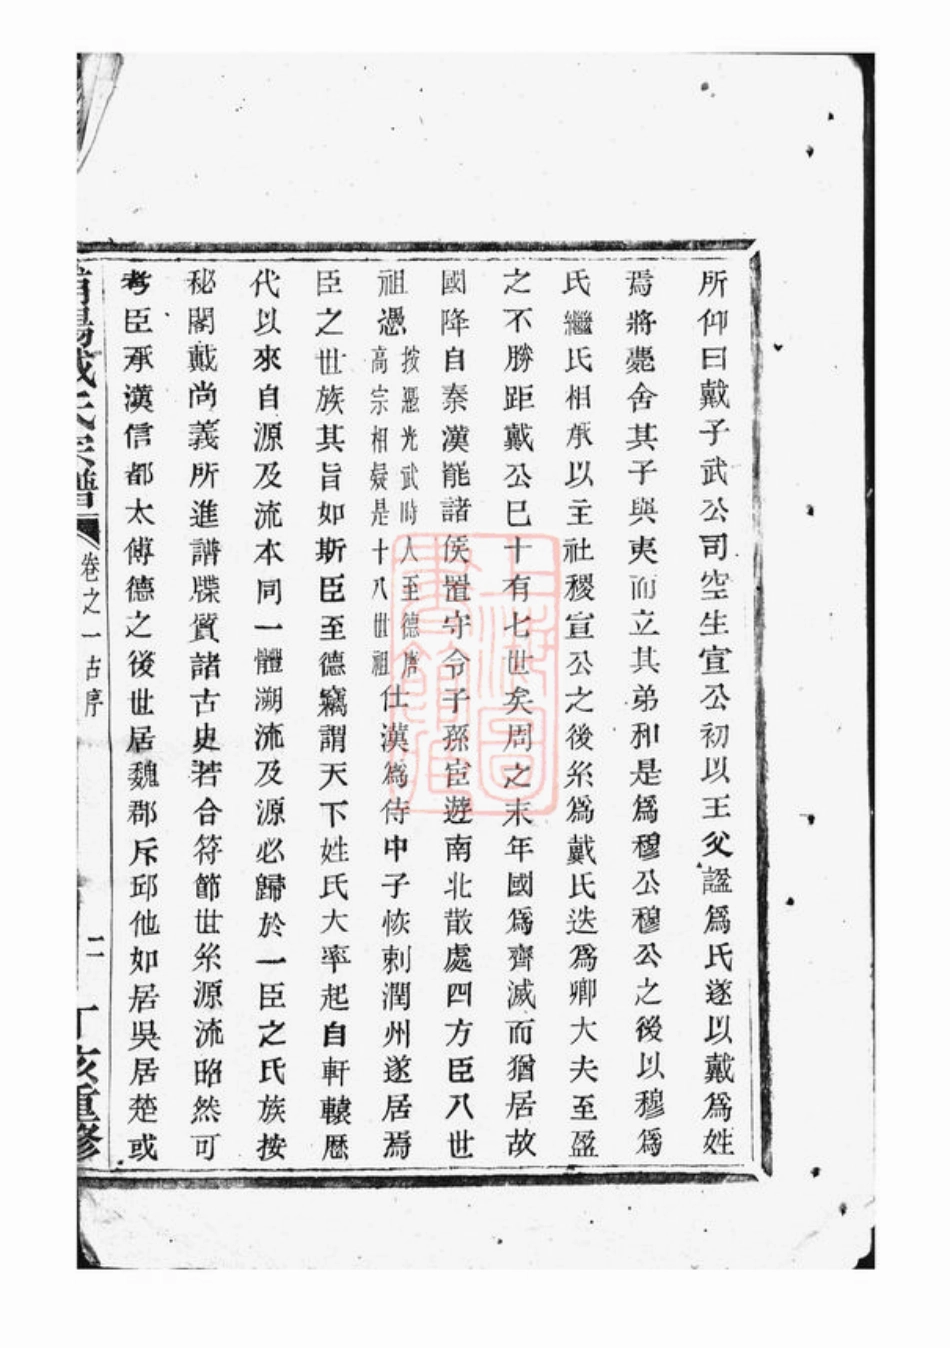 所仰曰戴子武公司空生宣公初以王父諡爲氏遂以戴爲姓
焉將薨舍其子與夷而立其弟和是爲穆公穆公之後以穆爲
氏繼氏相承以主社稷宣公之後糸爲戴氏迭爲卿大夫至盈
之不勝距戴公巳十有七世矣周之末年國爲齊滅而猶居故
國降自秦漢罷諸侯置守令子孫宦遊南北散處四方臣八世
祖憑
按憑光武時人至德唐
高宗相疑是十八世祖
仕漢爲侍中子恢刺潤州遂居焉
臣之世族其旨如斯臣至德竊謂天下姓氏大率起自軒轅歷
代以來自源及流本同一體溯流及源必歸於一臣之氏族按
秘閣戴尚義所進譜牒質諸古史若合符節世糸源流昭然可
考臣承漢信都太傅德之後世居魏郡斥邱他如居吳居楚或
戴氏宗譜 卷之一古序 二 丁亥重修
上海圖書館藏